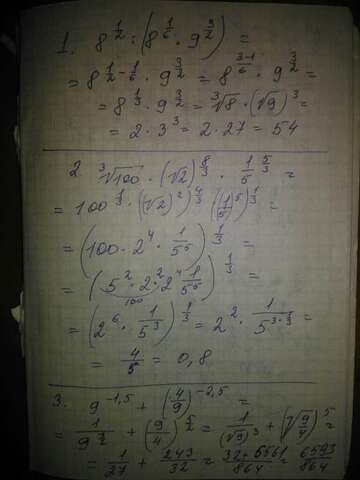 1. 8^{1/2} : (8^{1/6} · 9^{3/2}) =
= 8^{1/2 - 1/6} · 9^{3/2} = 8^{(3-1)/6} · 9^{3/2} =
= 8^{1/3} · 9^{3/2} = ∛8 · (√9)^3 =
= 2 · 3^3 = 2 · 27 = 54
2. ∛100 · (√2)^{8/3} · 1/5^{5/3} =
= 100^{1/3} · ((√2)^2)^{4/3} · ((1/5)^5)^{1/3} =
= (100 · 2^4 · 1/5^5)^{1/3} =
= (5^2 · 2^2 · 2^4 · 1/5^5)^{1/3} =
100
= (2^6 · 1/5^3)^{1/3} = 2^2 · 1/5^{3·1/3} =
= 4/5 = 0,8
3. 9^{-1,5} + (4/9)^{-2,5} =
= 1/9^{3/2} + (9/4)^{5/2} = 1/(√9)^3 + (√(9/4))^5 =
= 1/27 + 243/32 = (32+6561)/864 = 6593/864